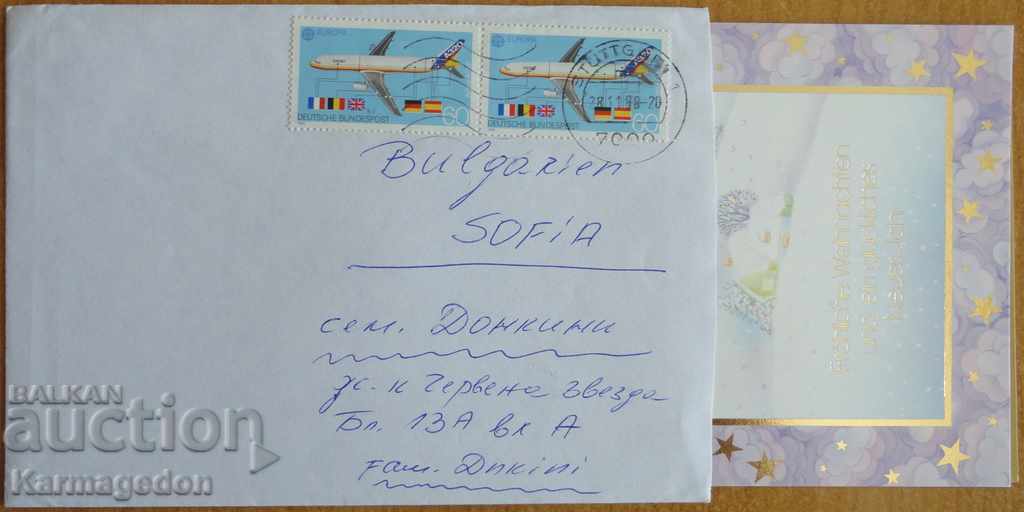 EUROPA
EUROPA
A320
DEUTSCHE BUNDESPOST
60
DEUTSCHE BUNDESPOST
60
STUTTGART 1
28.11.88-20
7000
Bulgarien
SOFIA
сем. Донкини
ж.к Червена звезда
Бл. 13А вх А
Fam. Dnkini
Fröhliche Weihnachten
und ein glückliches
Neues Jahr
BALKAN
auction
Karmagedon